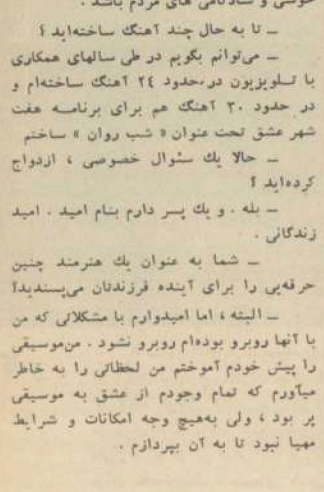 خوشی و شادکامی های مردم باشد .
ــ تا به حال چند آهنگ ساخته‌اید ؟
ــ می‌توانم بگویم در طی سالهای همکاری
با تـلویزیون در حدود ٢٤ آهنگ ساخته‌ام و
در حدود ٣٠ آهنگ هم برای برنامــه هفت
شهر عشق تحت عنوان « شب روان » ساختم
ــ حالا یك سئوال خصوصی ، ازدواج
کرده‌اید ؟
ــ بله . و یك پسر دارم بنام امید . امید
زندگانی .
ــ شما به عنوان یك هنرمند چنین
حرفه‌یی را برای آینده فرزندتان می‌پسندید؟
ــ البته ، اما امیدوارم با مشکلاتی که من
با آنها روبرو بوده‌ام روبرو نشود . من‌موسیقی
را پیش خودم آموختم من لحظاتی را به خاطر
میآورم که تمام وجودم از عشق به موسیقی
پر بود ، ولی به‌هیچ وجه امکانات و شرایط
مهیا نبود تا به آن بپردازم .